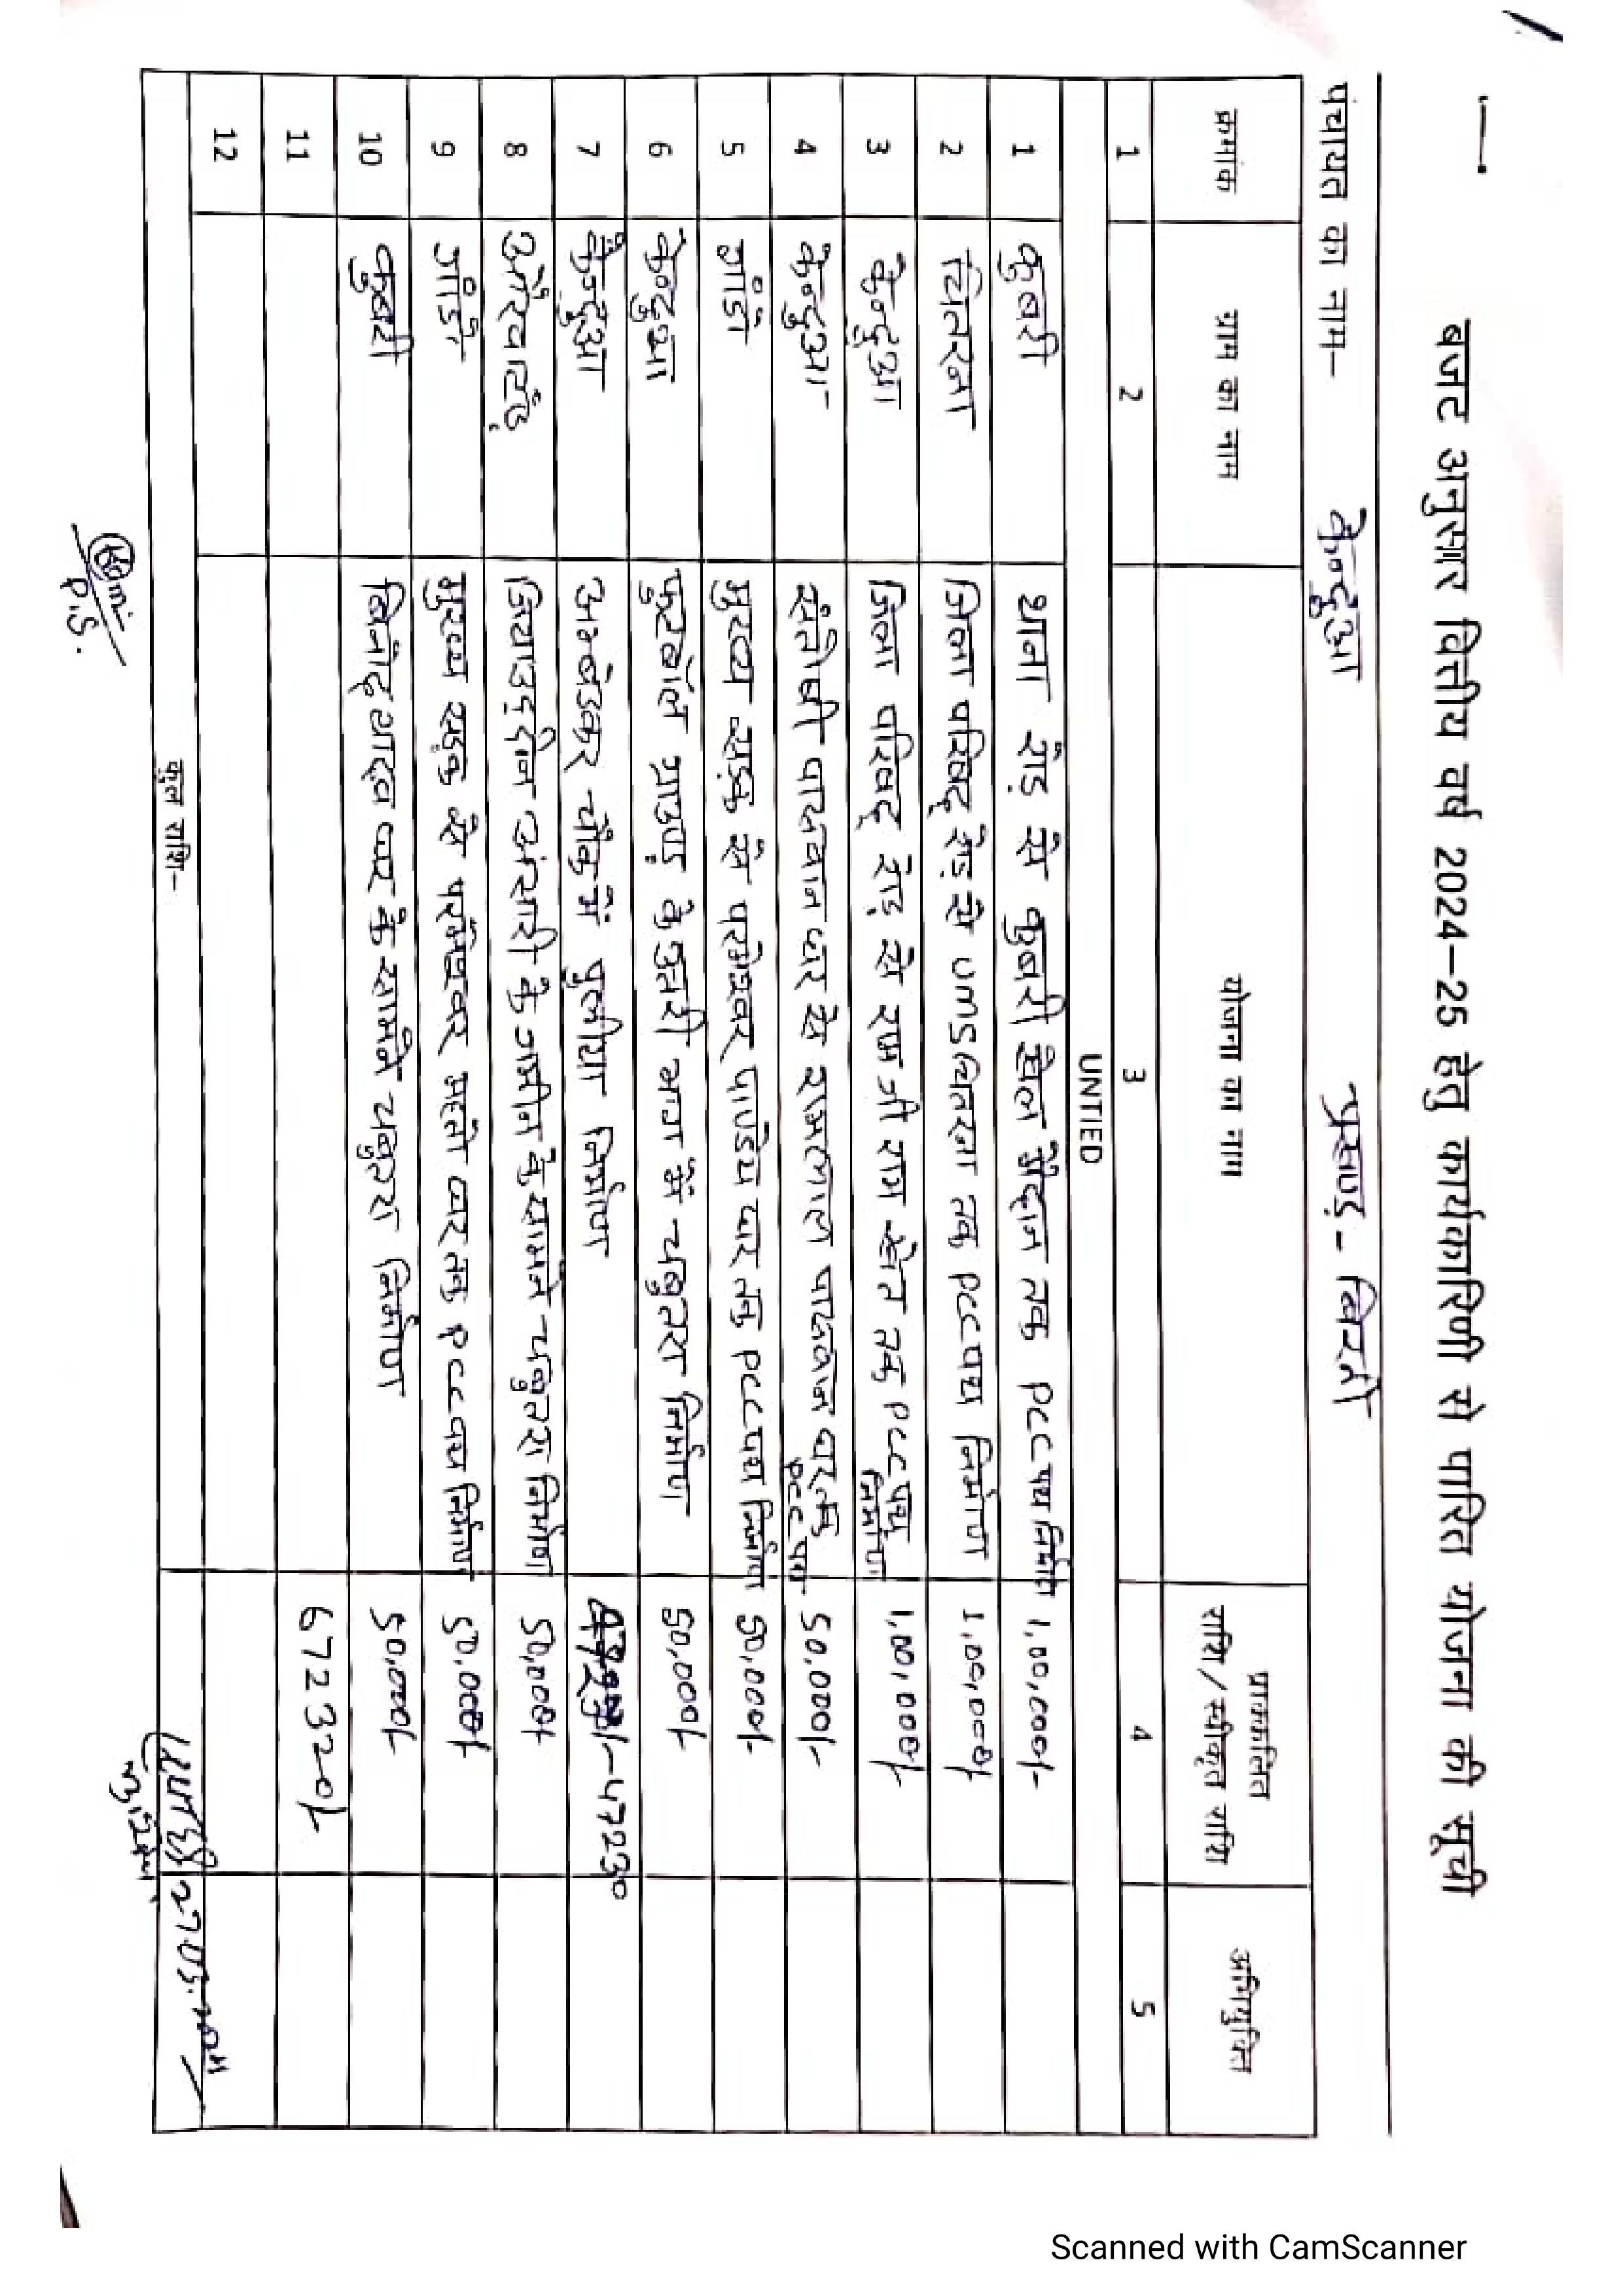 बजट अनुसार वित्तीय वर्ष 2024–25 हेतु कार्यकारिणी से पारित योजना की सूची
पंचायत का नाम– केन्दुआ प्रखण्ड - बिरनी
क्रमांक ग्राम का नाम योजना का नाम प्राक्कलित राशि/स्वीकृत राशि अभियुक्ति
1 2 3 4 5
UNTIED
1 कुबरी थाना रोड़ से कुबरी खेल मैदान तक PCC पथ निर्माण 1,00,000/-
2 चितरना जिला परिषद् रोड़ से UMS चितरना तक PCC पथ निर्माण 1,00,000/-
3 केन्दुआ जिला परिषद् रोड़ से राम जी राम खेत तक PCC पथ निर्माण 1,00,000/-
4 केन्दुआ संतोषी पासवान घर से रामलाल पासवान घर तक PCC पथ 50,000/-
5 मुख्य सड़क से परमेश्वर पाण्डेय घर तक PCC पथ निर्माण 50,000/-
6 केन्दुआ फुटबॉल ग्राउण्ड के उतरी भाग में चबुतरा निर्माण 50,000/-
7 केन्दुआ अम्बेडकर चौक में पुलीया निर्माण 47230
8 जियाउद्दीन अंसारी के जमीन के सामने चबुतरा निर्माण 50,000/-
9 मुख्य सड़क से परमेश्वर महतो घर तक PCC पथ निर्माण 50,000/-
10 कुबरी बिनोद साव घर के सामने चबुतरा निर्माण 50,000/-
11 672320/-
12
कुल राशि–
P.S.
27.03.
Scanned with CamScanner